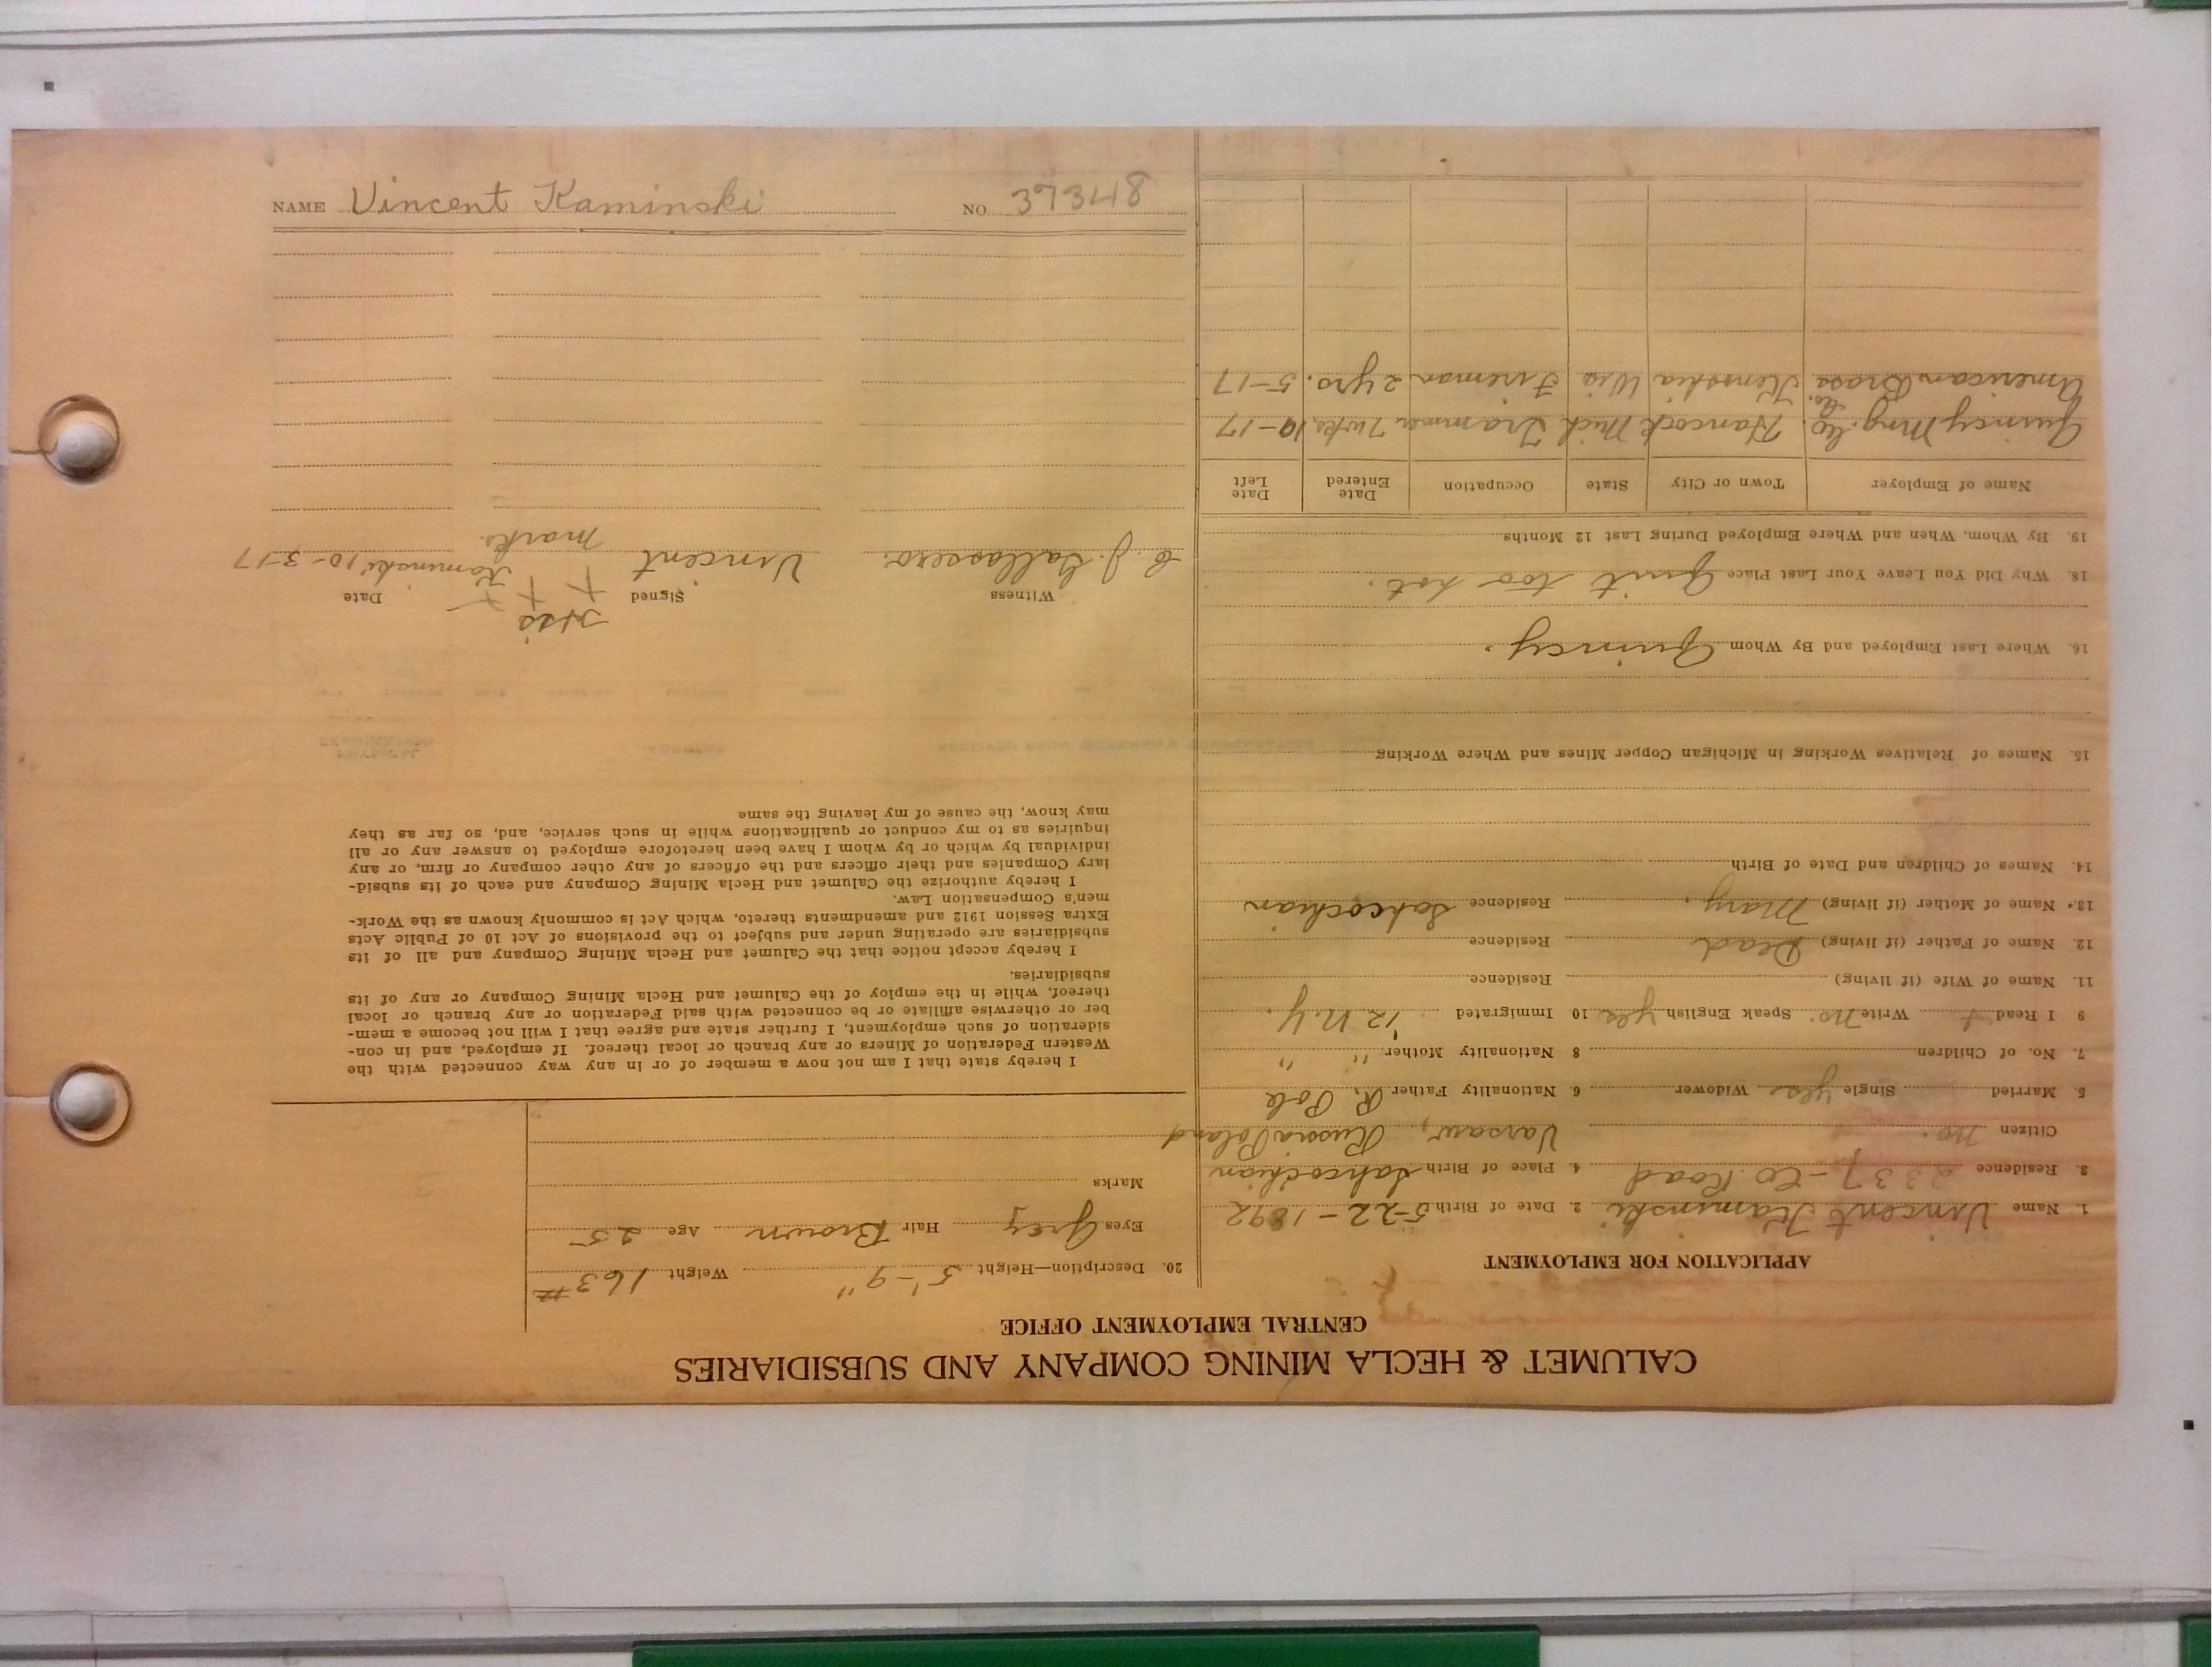 CALUMET & HECLA MINING COMPANY AND SUBSIDIARIES
CENTRAL EMPLOYMENT OFFICE
APPLICATION FOR EMPLOYMENT
1. Name Vincent Kaminski 2. Date of Birth 5-22-1892
3. Residence 2337-Co. Road 4. Place of Birth Sahcochian
Citizen no. Varsaw, Russia Poland
5 Married Single yes Widower 6 Nationality Father R. Pole
7. No. of Children 8 Nationality Mother " "
9 I Read + Write no. Speak English yes 10 Immigrated '12 N.Y.
11. Name of Wife (if living) Residence
12. Name of Father (if living) Dead Residence
13. Name of Mother (if living) Mary. Residence Sahcochian
14. Names of Children and Date of Birth
15. Names of Relatives Working in Michigan Copper Mines and Where Working
16. Where Last Employed and By Whom Quincy.
18. Why Did You Leave Your Last Place Quit too hot.
19. By Whom, When and Where Employed During Last 12 Months
Name of Employer Town or City State Occupation Date Entered Date Left
Quincy Mng. Co. Hancock Mich Trammer 7 wks 10-17
American Brass Co. Kenoskia Wis Fireman 2 yrs. 5-17
20. Description—Height 5'-9" Weight 163#
Eyes Grey Hair Brown Age 25
Marks
I hereby state that I am not now a member of or in any way connected with the
Western Federation of Miners or any branch or local thereof. If employed, and in con-
sideration of such employment, I further state and agree that I will not become a mem-
ber or otherwise affiliate or be connected with said Federation or any branch or local
thereof, while in the employ of the Calumet and Hecla Mining Company or any of its
subsidiaries.
I hereby accept notice that the Calumet and Hecla Mining Company and all of its
subsidiaries are operating under and subject to the provisions of Act 10 of Public Acts
Extra Session 1912 and amendments thereto, which Act is commonly known as the Work-
men's Compensation Law.
I hereby authorize the Calumet and Hecla Mining Company and each of its subsid-
iary Companies and their officers and the officers of any other company or firm, or any
individual by which or by whom I have been heretofore employed to answer any or all
inquiries as to my conduct or qualifications while in such service, and, so far as they
may know, the cause of my leaving the same
His
Witness Signed + + + Date
C. J. Vincent Kaminski 10-3-17
marks.
NAME Vincent Kaminski NO 37348